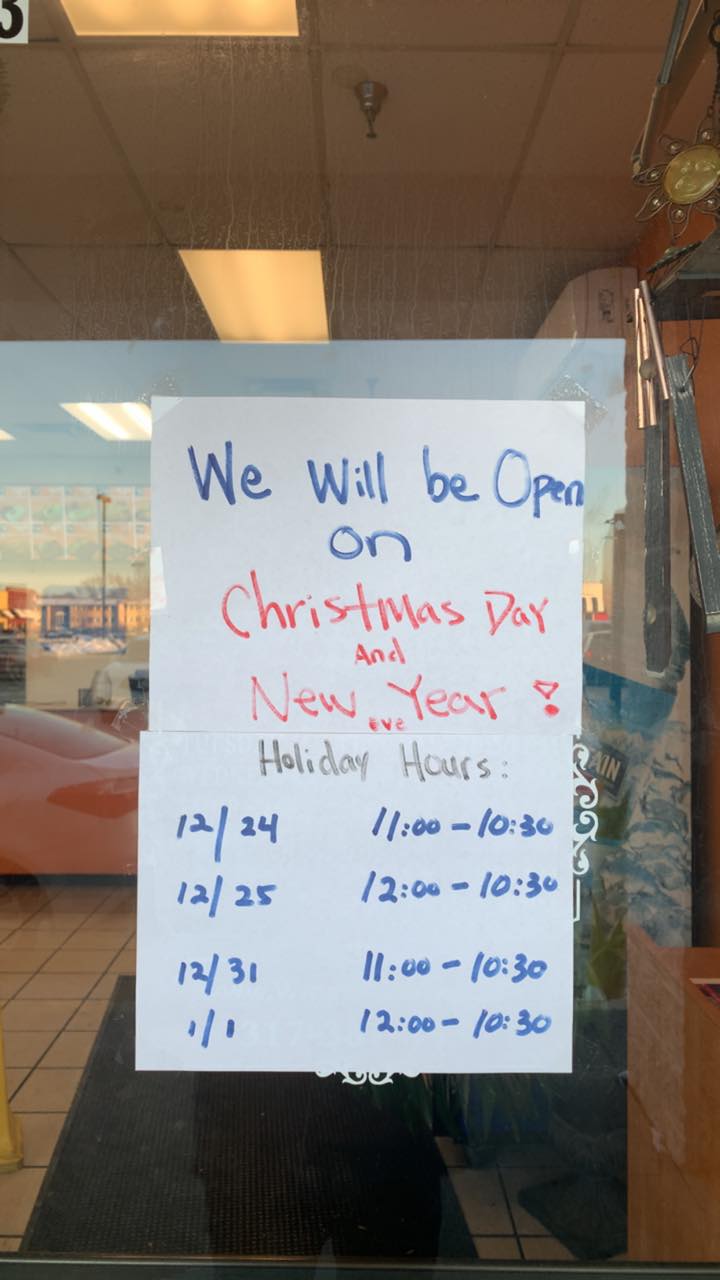 3
We Will be Open
on
Christmas Day
And
New Year !
eve
Holiday Hours:
12/24 11:00 - 10:30
12/25 12:00 - 10:30
12/31 11:00 - 10:30
1/1 12:00 - 10:30
AIN